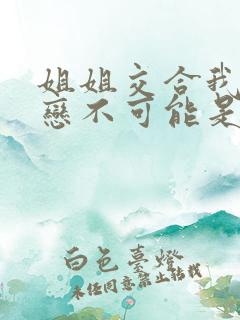 姐姐交合我
戀不可能是
白色臺燈
未经同意禁止转载